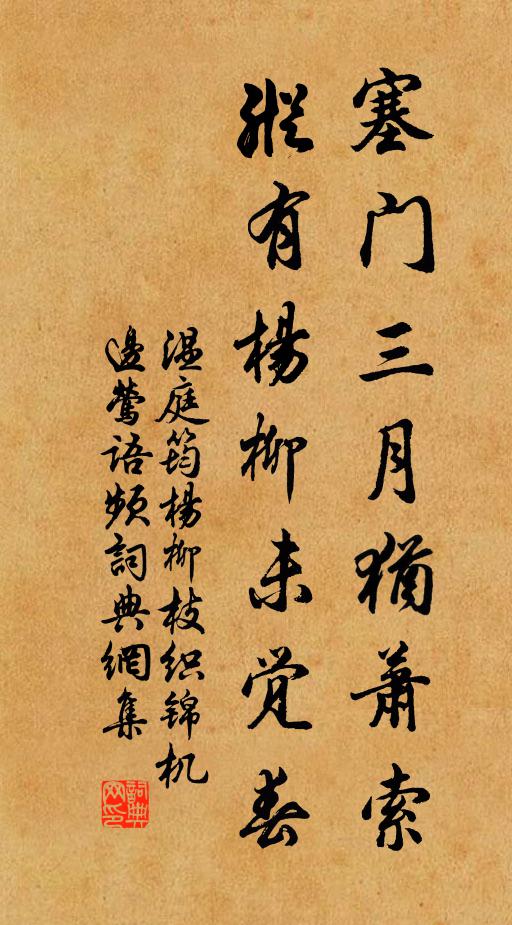 塞门三月猶蕭索
縱有楊柳未觉春
温庭筠楊柳枝织锦机
邊莺语频詞典網集
詞典网印